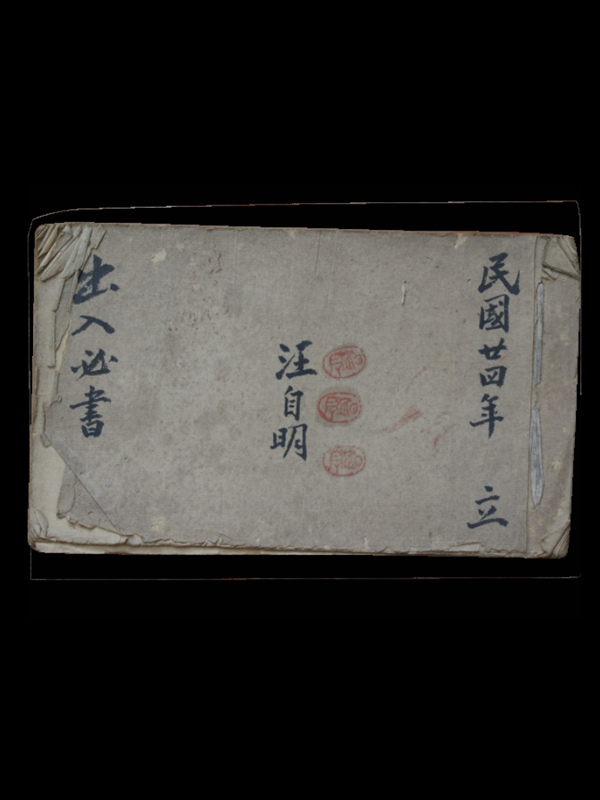 民國廿四年 立
汪自明
出入必書